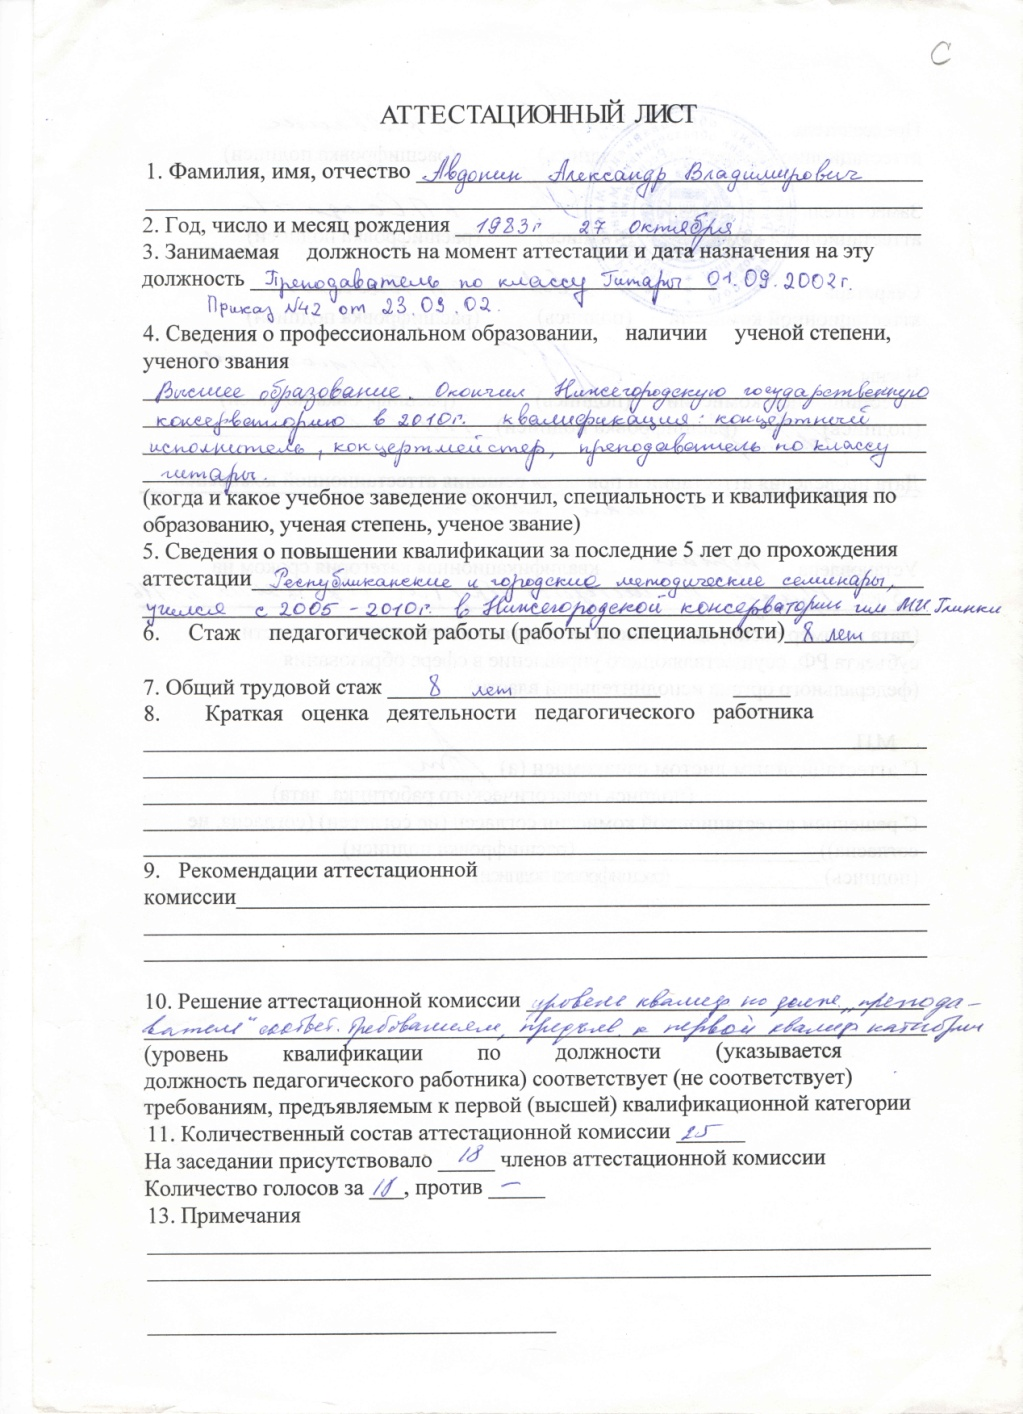 С
АТТЕСТАЦИОННЫЙ ЛИСТ
1. Фамилия, имя, отчество Авдонин Александр Владимирович
2. Год, число и месяц рождения 1983г 27 октября
3. Занимаемая должность на момент аттестации и дата назначения на эту
должность Преподаватель по классу Гитары 01.09.2002г.
Приказ №42 от 23.09.02.
4. Сведения о профессиональном образовании, наличии ученой степени,
ученого звания
Высшее образование. Окончил Нижегородскую государственную
консерваторию в 2010г. квалификация: концертный
исполнитель, концертмейстер, преподаватель по классу
гитары.
(когда и какое учебное заведение окончил, специальность и квалификация по
образованию, ученая степень, ученое звание)
5. Сведения о повышении квалификации за последние 5 лет до прохождения
аттестации Республиканские и городские методические семинары,
учился с 2005 - 2010г. в Нижегородской консерватории им М.И. Глинки
6. Стаж педагогической работы (работы по специальности) 8 лет
7. Общий трудовой стаж 8 лет
8. Краткая оценка деятельности педагогического работника
9. Рекомендации аттестационной
комиссии
10. Решение аттестационной комиссии уровень квалиф по долж „препода-
вателя" соответ. требованиям, предъяв. к первой квалиф категории
(уровень квалификации по должности (указывается
должность педагогического работника) соответствует (не соответствует)
требованиям, предъявляемым к первой (высшей) квалификационной категории
11. Количественный состав аттестационной комиссии 25
На заседании присутствовало 18 членов аттестационной комиссии
Количество голосов за 18, против —
13. Примечания